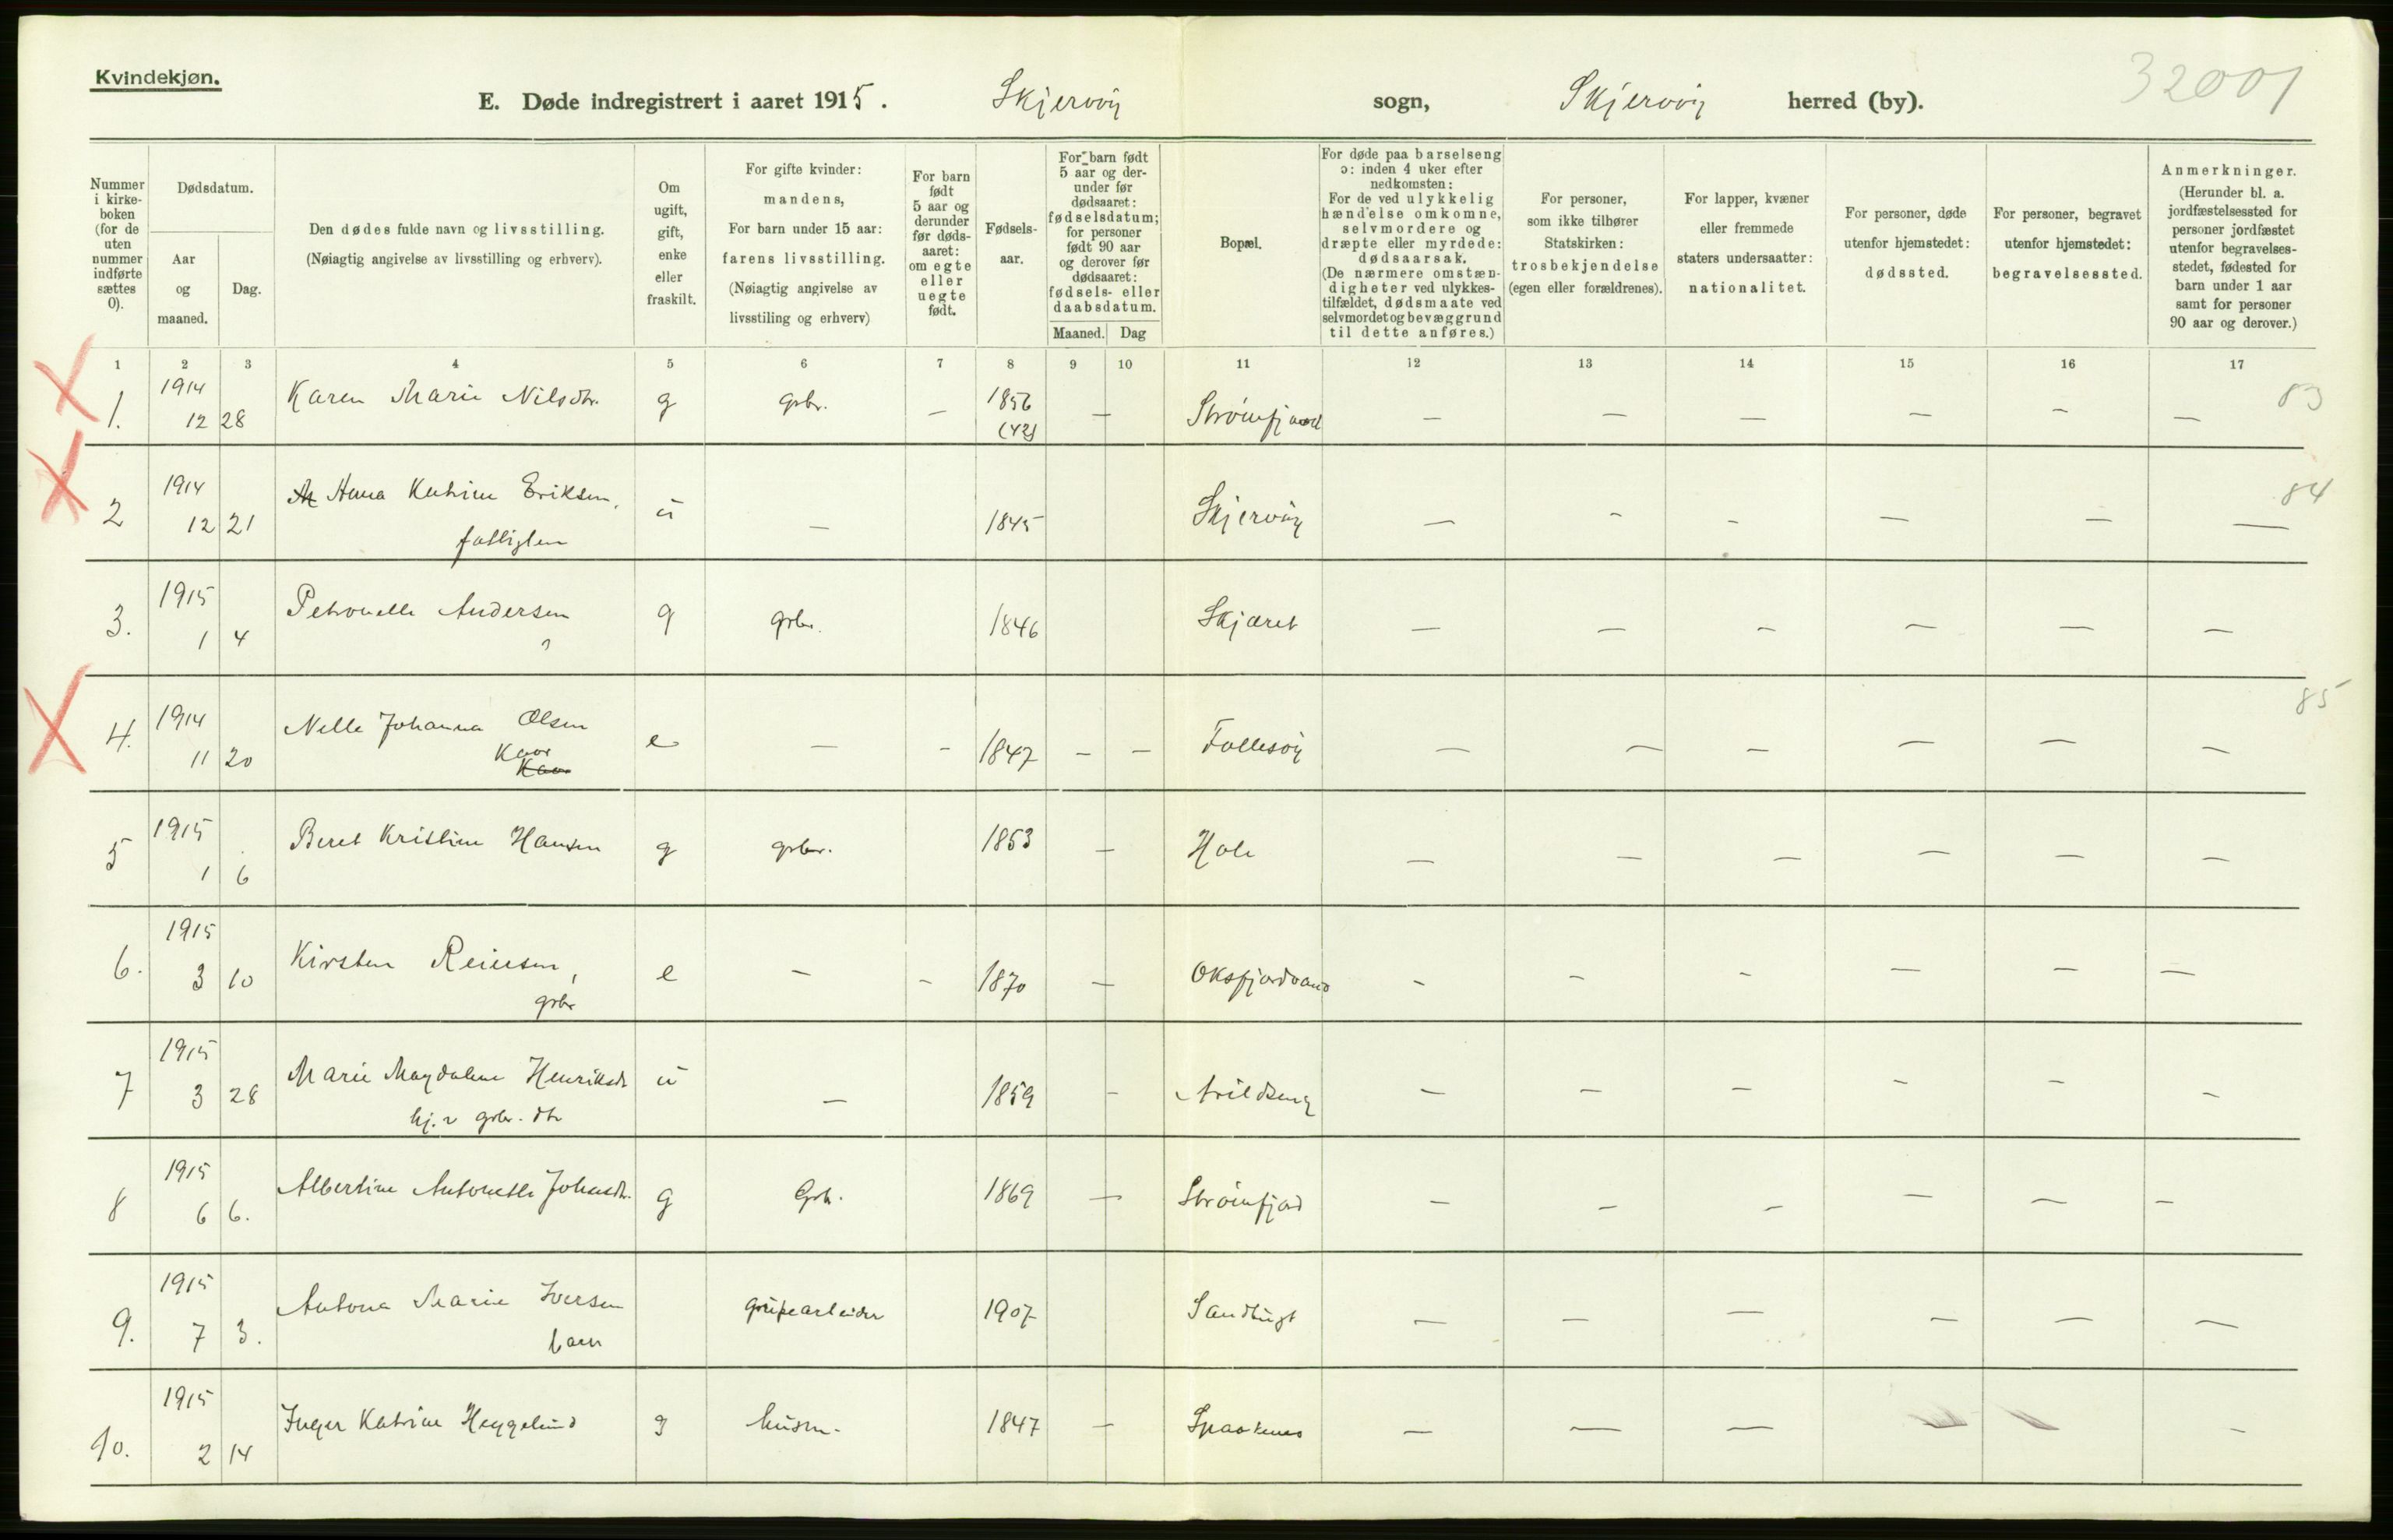 Kvindekjøn.
E. Døde indregistrert i aaret 1915. Skjervøy sogn, Skjervøy herred (by).
32001
Nummer i kirkeboken (for de uten nummer indførte sættes 0).
Dødsdatum.
Aar og maaned.
Dag.
Den dødes fulde navn og livsstilling.
(Nøiagtig angivelse av livsstilling og erhverv).
Om ugift, gift, enke eller fraskilt.
For gifte kvinder: mandens,
For barn under 15 aar: farens livsstilling.
(Nøiagtig angivelse av livsstiling og erhverv)
For barn født 5 aar og derunder før dødsaaret: om egte eller uegte født.
Fødselsaar.
For barn født 5 aar og derunder før dødsaaret: fødselsdatum; for personer født 90 aar og derover før dødsaaret: fødsels- eller daabsdatum.
Maaned. Dag
Bopæl.
For døde paa barselseng ɔ: inden 4 uker efter nedkomsten:
For de ved ulykkelig hændelse omkomne, selvmordere og dræpte eller myrdede: dødsaarsak.
(De nærmere omstændigheter ved ulykkestilfældet, dødsmaate ved selvmordet og bevæggrund til dette anføres.)
For personer, som ikke tilhører Statskirken: trosbekjendelse (egen eller forældrenes).
For lapper, kvæner eller fremmede staters undersaatter: nationalitet.
For personer, døde utenfor hjemstedet: dødssted.
For personer, begravet utenfor hjemstedet: begravelsessted.
Anmerkninger.
(Herunder bl. a. jordfæstelsessted for personer jordfæstet utenfor begravelsesstedet, fødested for barn under 1 aar samt for personer 90 aar og derover.)
1 2 3 4 5 6 7 8 9 10 11 12 13 14 15 16 17
1. 1914 12 28 Karen Marie Nilsdtr. g grbr. — 1856 (42) — Strømfjord — — — — — — 83
2 1914 12 21 Anna Katrine Eriksen, fattiglem u — 1845 Skjervøy — — — — — — 84
3. 1915 1 4 Petronelle Andersen g grbr. 1846 Skjæret — — — — — —
4. 1914 11 20 Nelle Johanna Olsen Kaar e — — 1847 — — Follesøy — — — — — — 85
5 1915 1 6 Beret Kristine Hansen g grbr. 1853 — Hole — — — — — —
6. 1915 3 10 Kirsten Reiersen, grbr e — — 1870 — Oksfjordvand — — — — — —
7 1915 3 28 Marie Magdalene Henriksdt hj. v grbr. dtr u — 1859 — Arildseng — — — — — —
8 1915 6 6. Albertine Antonette Johansdtr. g Grb. 1869 — Strømfjord — — — — — —
9. 1915 7 3. Antona Marie Iversen barn grubearbeider 1907 Sandbugt — — — — — —
10. 1915 2 14 Inger Katrine Heggelund g husm. 1847 — Spaaknes — — — —